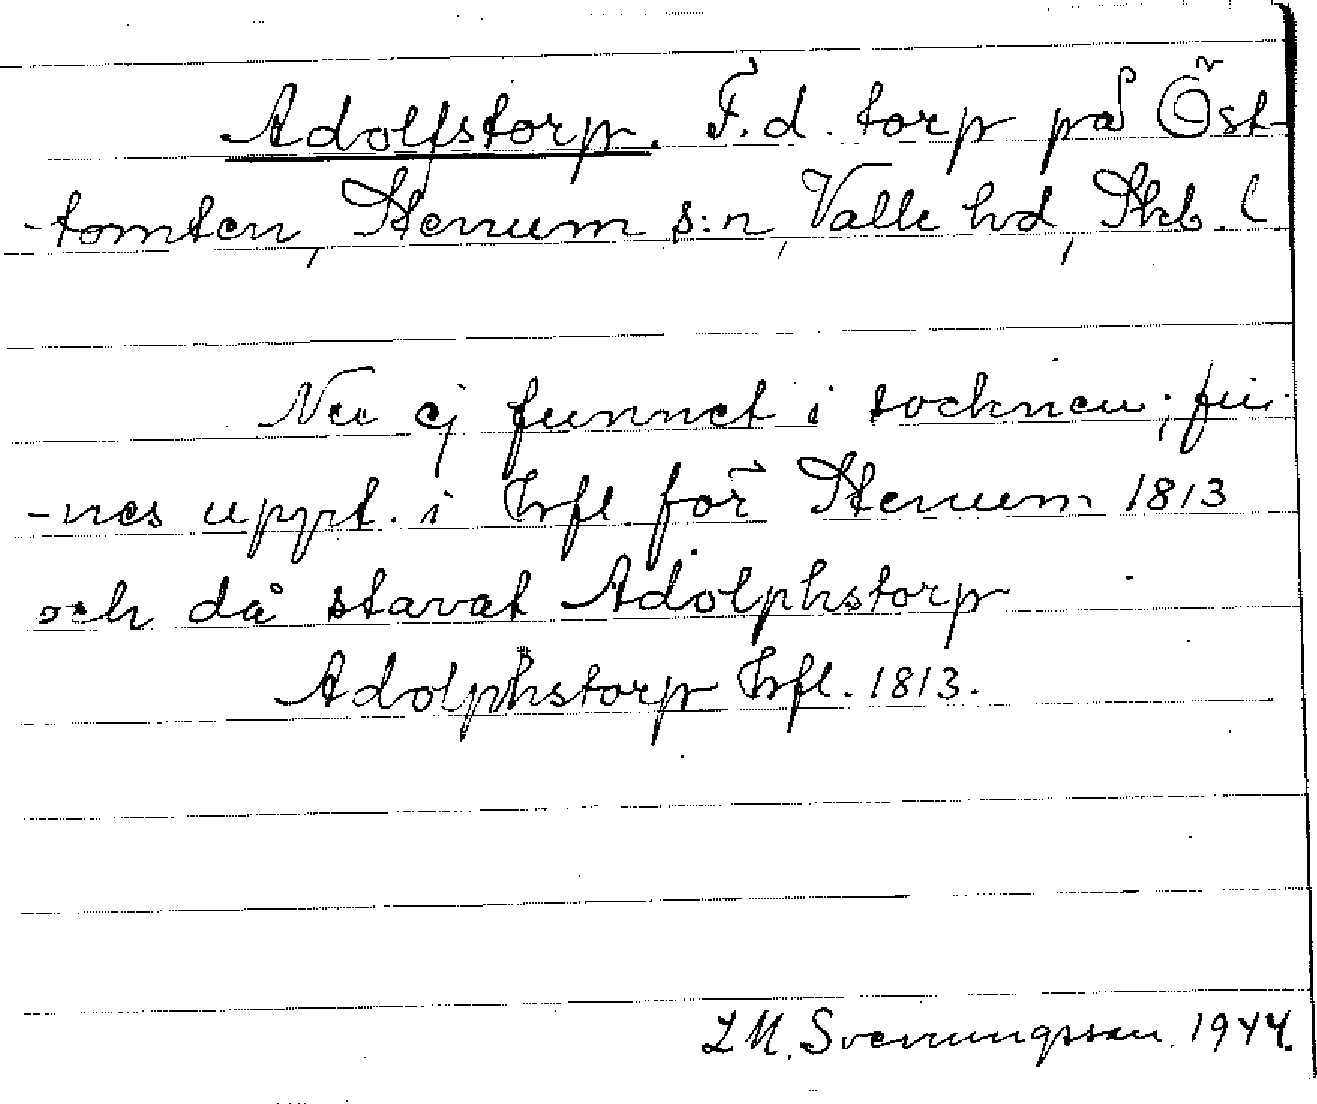 Adolfstorp. F.d. torp på Öst-
-tomten, Stenum s:n, Valle hd, Skb. l
Nu ej funnet i socknen; fin-
-nes uppt. i hfl. för Stenum 1813
och då stavat Adolphstorp
Adolphstorp hfl. 1813.
Svenungsson 1944.